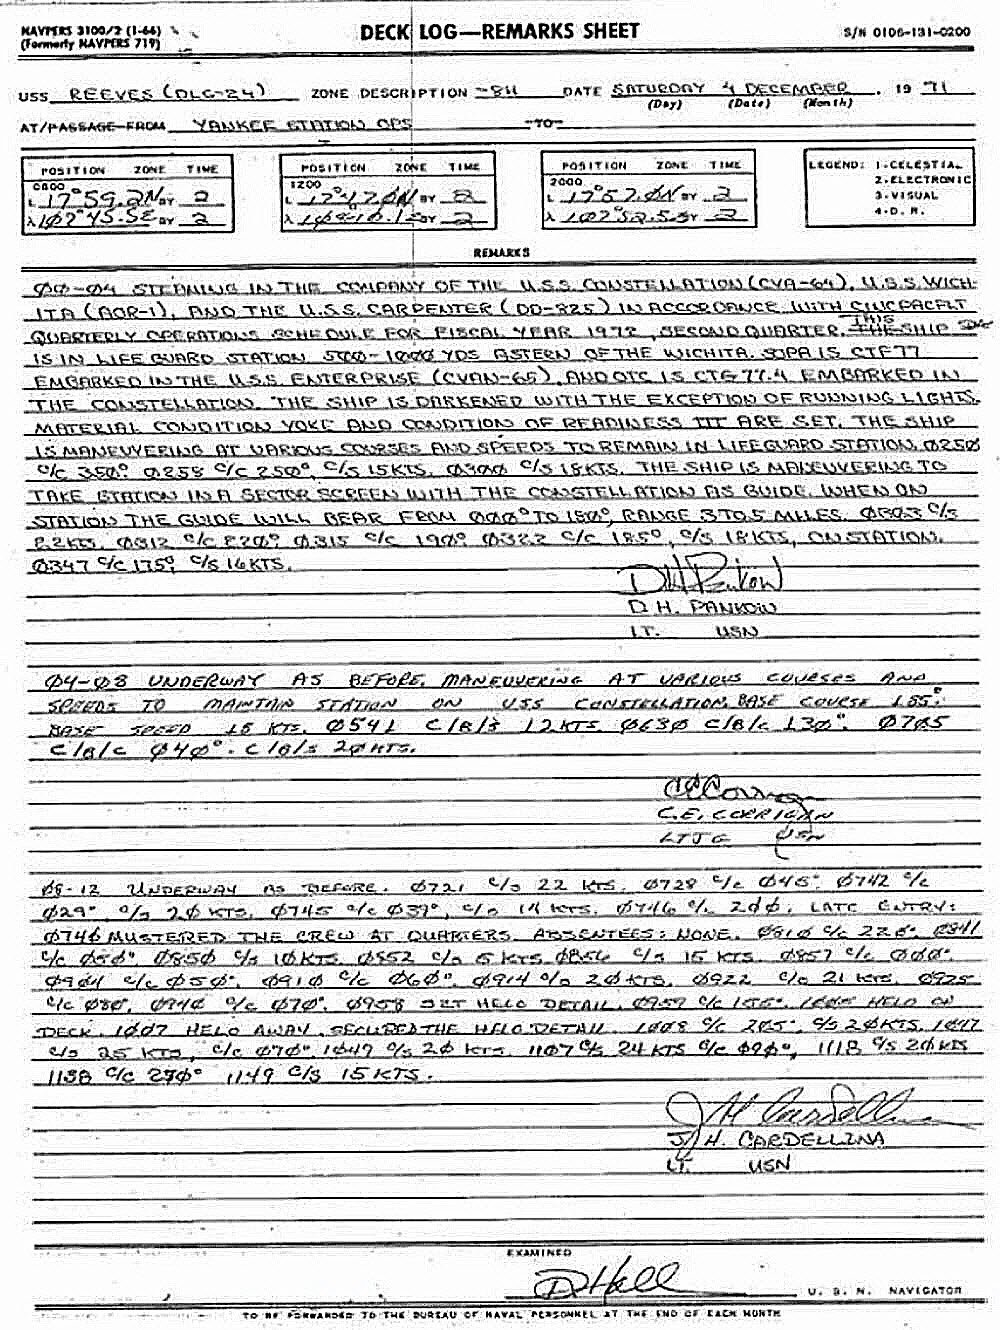 NAVPERS 3100/2 (1-66)
(Formerly NAVPERS 719)
DECK LOG—REMARKS SHEET
S/N 0106-131-0200
USS REEVES (DLG-24) ZONE DESCRIPTION -8H DATE SATURDAY 4 DECEMBER, 19 71
(Day) (Date) (Month)
AT/PASSAGE FROM YANKEE STATION OPS TO
POSITION ZONE TIME
0800
L 17°59.2N BY 2
λ 107°45.5E BY 2
POSITION ZONE TIME
1200
L 17°47.0N BY 2
λ 108°10.1E BY 2
POSITION ZONE TIME
2000
L 17°57.0N BY 2
λ 107°52.5E BY 2
LEGEND: 1-CELESTIAL
2-ELECTRONIC
3-VISUAL
4-D.R.
REMARKS
ØØ-Ø4 STEAMING IN THE COMPANY OF THE U.S.S. CONSTELLATION (CVA-64), U.S.S. WICH-
ITA (AOR-1), AND THE U.S.S. CARPENTER (DD-825) IN ACCORDANCE WITH CINCPACFLT
QUARTERLY OPERATIONS SCHEDULE FOR FISCAL YEAR 1972, SECOND QUARTER. THIS THE SHIP
IS IN LIFE GUARD STATION 5ØØ-1ØØØ YDS ASTERN OF THE WICHITA. SOPA IS CTF 77
EMBARKED IN THE U.S.S. ENTERPRISE (CVAN-65), AND OTC IS CTG 77.4 EMBARKED IN
THE CONSTELLATION. THE SHIP IS DARKENED WITH THE EXCEPTION OF RUNNING LIGHTS.
MATERIAL CONDITION YOKE AND CONDITION OF READINESS III ARE SET. THE SHIP
IS MANEUVERING AT VARIOUS COURSES AND SPEEDS TO REMAIN IN LIFEGUARD STATION. Ø250
C/C 350° Ø258 C/C 250°, C/S 15KTS. Ø3ØØ C/S 18KTS. THE SHIP IS MANEUVERING TO
TAKE STATION IN A SECTOR SCREEN WITH THE CONSTELLATION AS GUIDE. WHEN ON
STATION THE GUIDE WILL BEAR FROM ØØØ° TO 180°, RANGE 3 TO 5 MILES. Ø303 C/S
22KTS. Ø312 C/C 220° Ø315 C/C 190° Ø322 C/C 185°, C/S 18KTS, ON STATION.
Ø347 C/C 175°, C/S 16KTS.
D H Pankow
D.H. PANKOW
LT. USN
Ø4-Ø8 UNDERWAY AS BEFORE. MANEUVERING AT VARIOUS COURSES AND
SPEEDS TO MAINTAIN STATION ON USS CONSTELLATION. BASE COURSE 185°
BASE SPEED 15 KTS. Ø541 C/B/S 12KTS Ø63Ø C/B/C 130°. Ø705
C/B/C Ø4Ø°. C/B/S 2ØKTS.
C.E. CORRIGAN
LTJG USN
Ø8-12 UNDERWAY AS BEFORE. Ø721 C/S 22 KTS. Ø728 C/C Ø45° Ø742 C/C
Ø29°, C/S 2Ø KTS. Ø745 C/C Ø39°, C/S 14 KTS. Ø746 C/C 2ØØ. LATE ENTRY:
Ø740 MUSTERED THE CREW AT QUARTERS. ABSENTEES: NONE. Ø810 C/C 220°. Ø841
C/C Ø5Ø° Ø85Ø C/S 10KTS Ø852 C/S 5 KTS. Ø856 C/S 15 KTS. Ø857 C/C ØØØ°.
Ø904 C/C Ø5Ø°. Ø910 C/C Ø6Ø°. Ø914 C/S 2ØKTS. Ø922 C/S 21 KTS. Ø925
C/C Ø8Ø°. Ø940 C/C Ø7Ø°. Ø958 SET HELO DETAIL. Ø959 C/C 155°. 1005 HELO ON
DECK. 1007 HELO AWAY. SECURED THE HELO DETAIL. 1008 C/C 205°, C/S 2ØKTS. 1047
C/S 25 KTS, C/C Ø7Ø° 1049 C/S 2Ø KTS 1107 C/S 24 KTS C/C Ø9Ø°, 1118 C/S 2ØKTS
1138 C/C 290° 1149 C/S 15 KTS.
J H Cardellina
J.H. CARDELLINA
LT. USN
EXAMINED
D Hall
U. S. N. NAVIGATOR
TO BE FORWARDED TO THE BUREAU OF NAVAL PERSONNEL AT THE END OF EACH MONTH